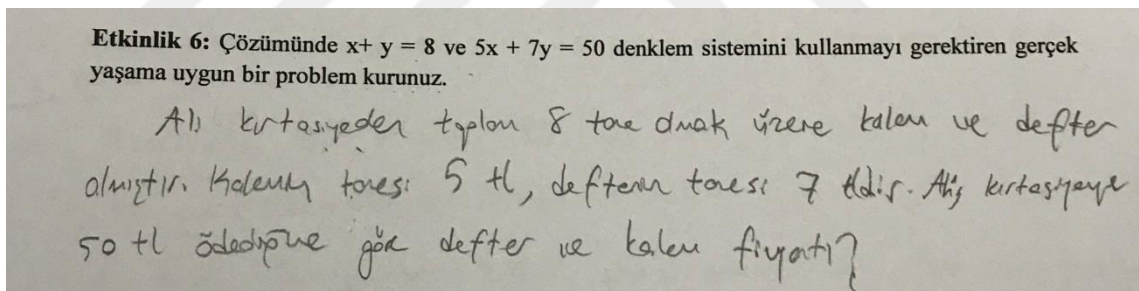 Etkinlik 6: Çözümünde x+ y = 8 ve 5x + 7y = 50 denklem sistemini kullanmayı gerektiren gerçek
yaşama uygun bir problem kurunuz.
Ali kırtasiyeden toplam 8 tane olmak üzere kalem ve defter
almıştır. Kalemin tanesi 5 tl, defterin tanesi 7 tldir. Ali, kırtasiyeye
50 tl ödediğine göre defter ve kalem fiyatı?